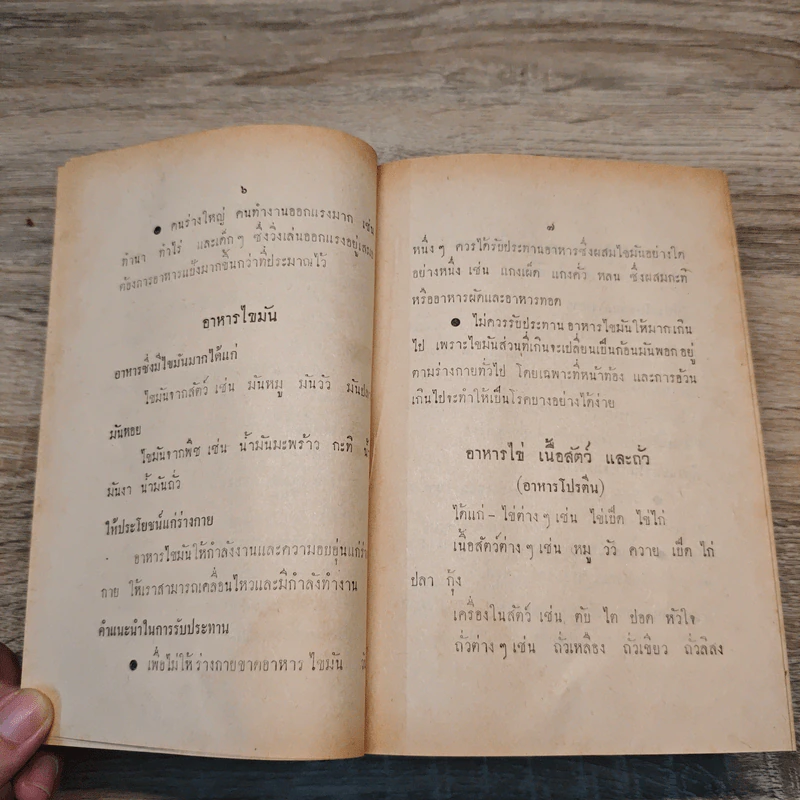 ๖
● คนร่างใหญ่ คนทำงานออกแรงมาก เช่น
ทำนา ทำไร่ และเด็กๆ ซึ่งวิ่งเล่นออกแรงอยู่เสมอ
ต้องการอาหารแป้งมากขึ้นกว่าที่ประมาณไว้
อาหารไขมัน
อาหารซึ่งมีไขมันมากได้แก่
ไขมันจากสัตว์ เช่น มันหมู มันวัว
มันหอย
ไขมันจากพืช เช่น น้ำมันมะพร้าว กะทิ
มันงา น้ำมันถั่ว
ให้ประโยชน์แก่ร่างกาย
อาหารไขมันให้กำลังงานและความอบอุ่นแก่ร่าง
กาย ให้เราสามารถเคลื่อนไหวและมีกำลังทำงาน
คำแนะนำในการรับประทาน
● เพื่อไม่ให้ร่างกายขาดอาหาร ไขมัน
๗
หนึ่งๆ ควรได้รับประทานอาหารซึ่งผสมไขมันอย่างใด
อย่างหนึ่ง เช่น แกงเผ็ด แกงคั่ว หลน ซึ่งผสมกะทิ
หรืออาหารผัดและอาหารทอด
● ไม่ควรรับประทานอาหารไขมันให้มากเกิน
ไป เพราะไขมันส่วนที่เกินจะเปลี่ยนเป็นก้อนมันพอกอยู่
ตามร่างกายทั่วไป โดยเฉพาะที่หน้าท้อง และการอ้วน
เกินไปจะทำให้เป็นโรคบางอย่างได้ง่าย
อาหารไข่ เนื้อสัตว์ และถั่ว
(อาหารโปรตีน)
ได้แก่ – ไข่ต่างๆ เช่น ไข่เป็ด ไข่ไก่
เนื้อสัตว์ต่างๆ เช่น หมู วัว ควาย เป็ด ไก่
ปลา กุ้ง
เครื่องในสัตว์ เช่น ตับ ไต ปอด หัวใจ
ถั่วต่างๆ เช่น ถั่วเหลือง ถั่วเขียว ถั่วลิสง